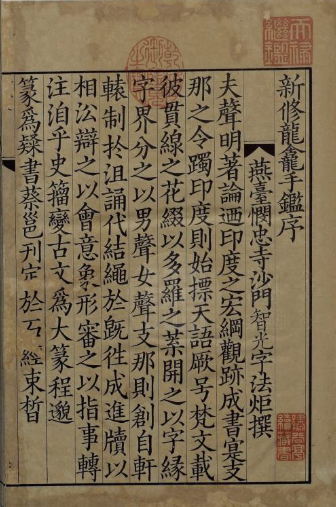 新修龍龕手鑑序
燕臺憫忠寺沙門智光字法炬撰
夫聲明著論迺印度之宏綱觀跡成書寔支
那之令躅印度則始摽天語厥号梵文載
彼貫線之花綴以多羅之葉開之以字緣
字界分之以男聲女聲支那則創自軒
轅制扵沮誦代結繩扵旣徃成進牘以
相沿辯之以會意象形審之以指事轉
注洎乎史籀變古文爲大篆程邈
篆爲隸書蔡邕刊 於 經束晳